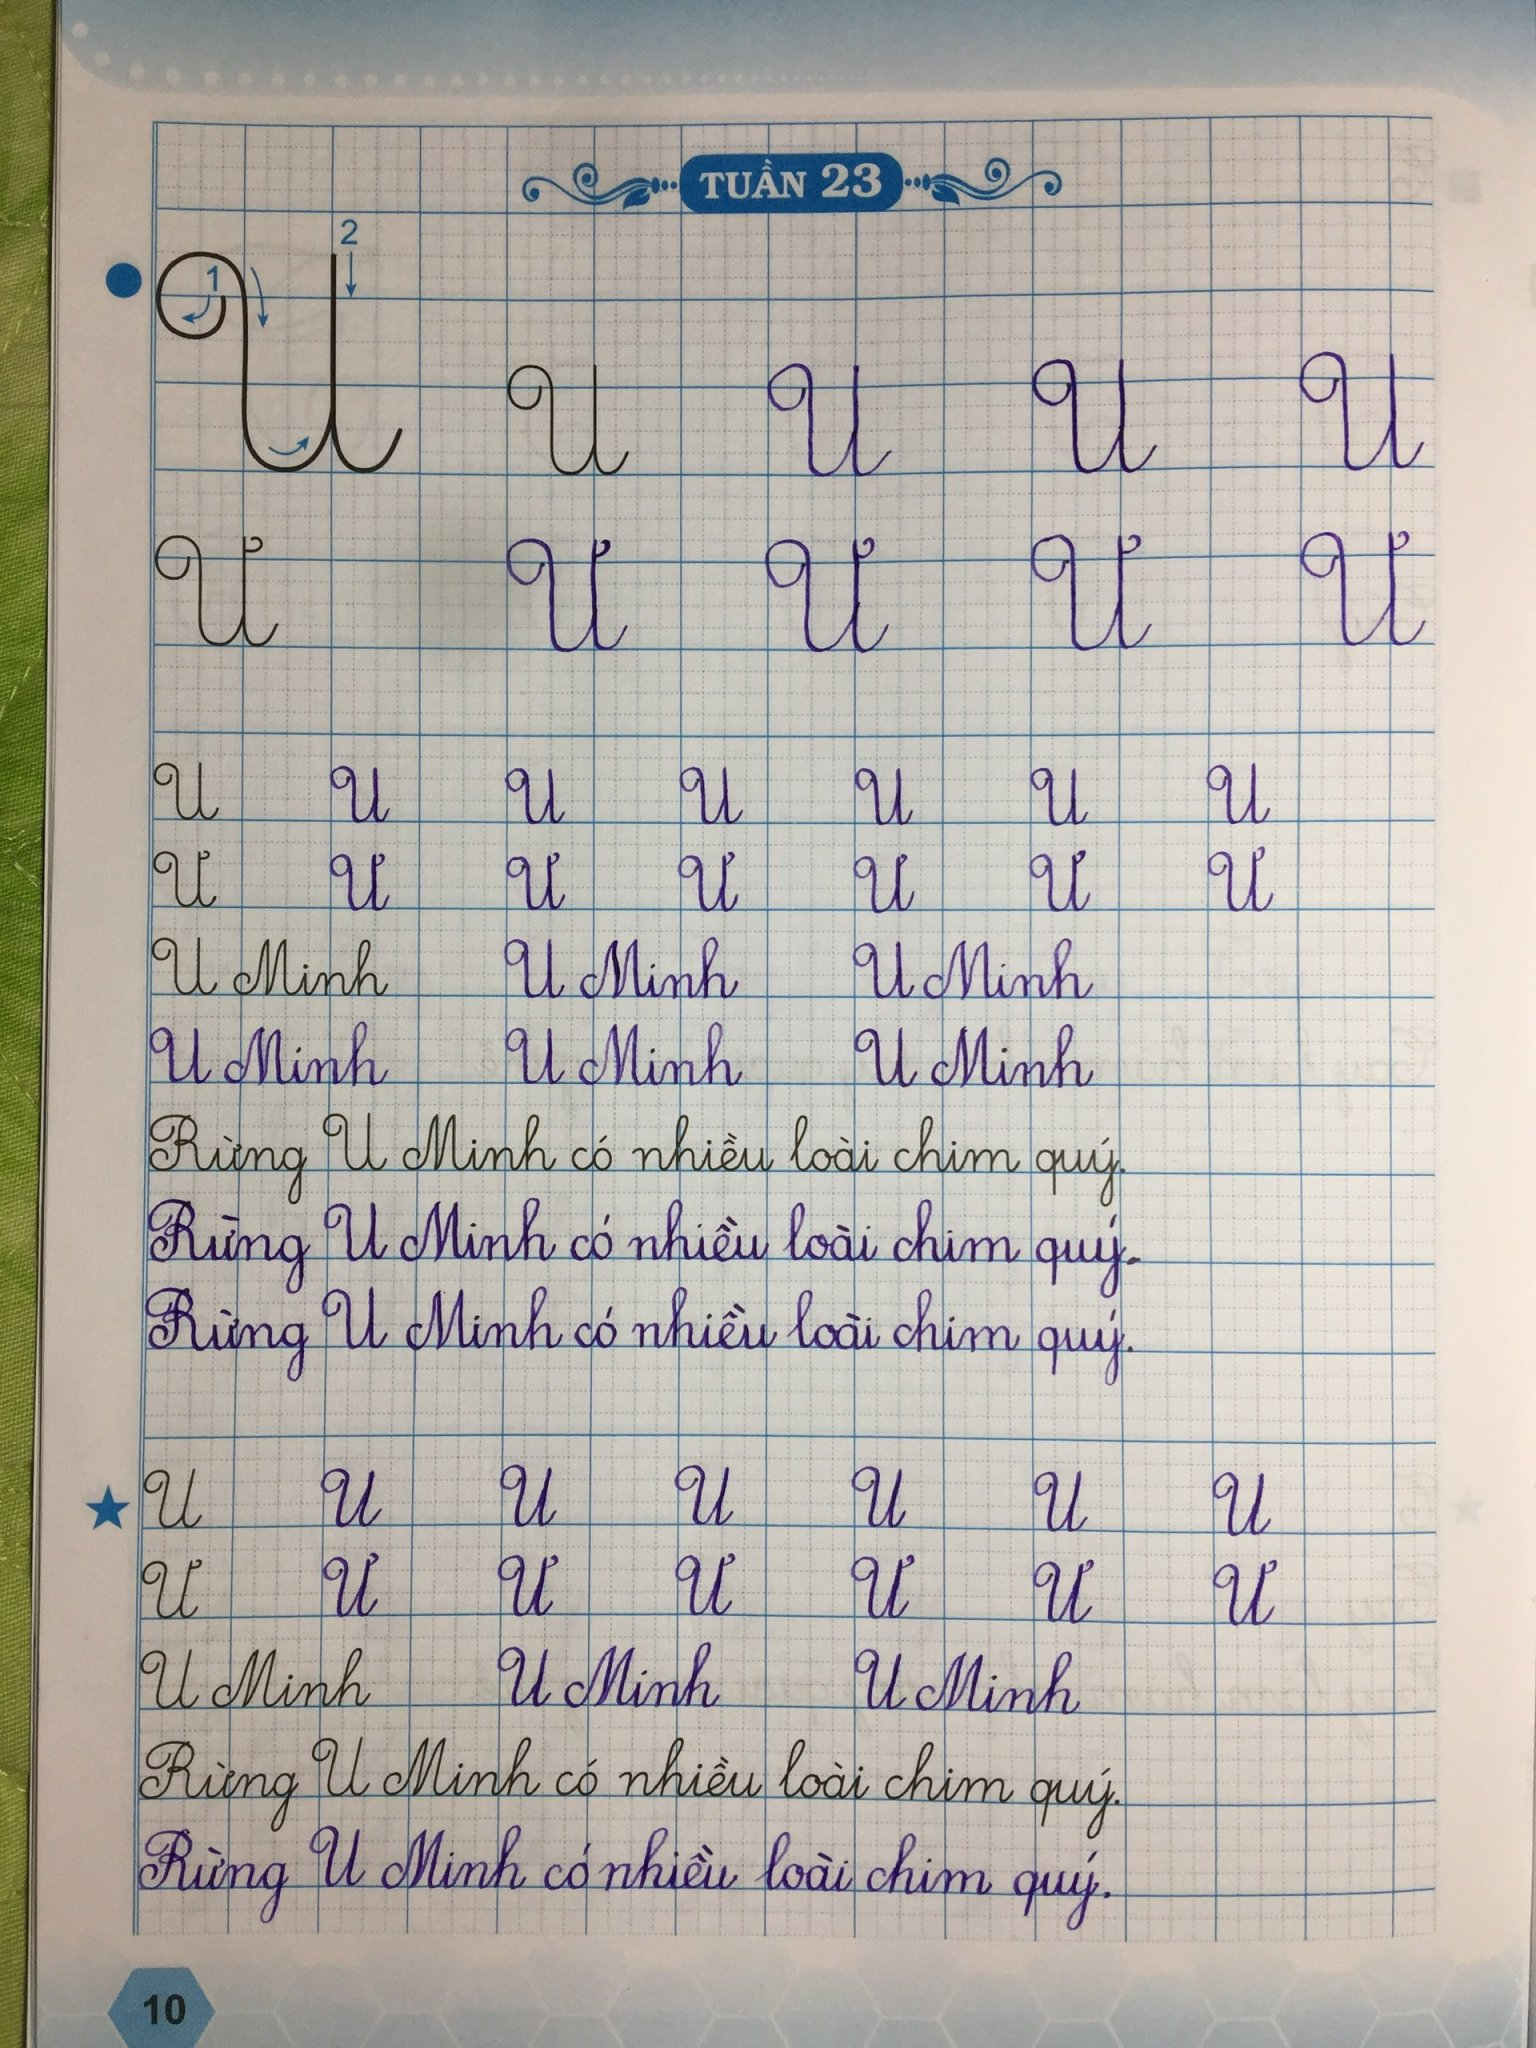 TUẦN 23
1 2
U U U U U
Ư Ư Ư Ư Ư
U U U U U U U
Ư Ư Ư Ư Ư Ư Ư
U Minh U Minh U Minh
U Minh U Minh U Minh
Rừng U Minh có nhiều loài chim quý.
Rừng U Minh có nhiều loài chim quý.
Rừng U Minh có nhiều loài chim quý.
U U U U U U U
Ư Ư Ư Ư Ư Ư Ư
U Minh U Minh U Minh
Rừng U Minh có nhiều loài chim quý.
Rừng U Minh có nhiều loài chim quý.
10